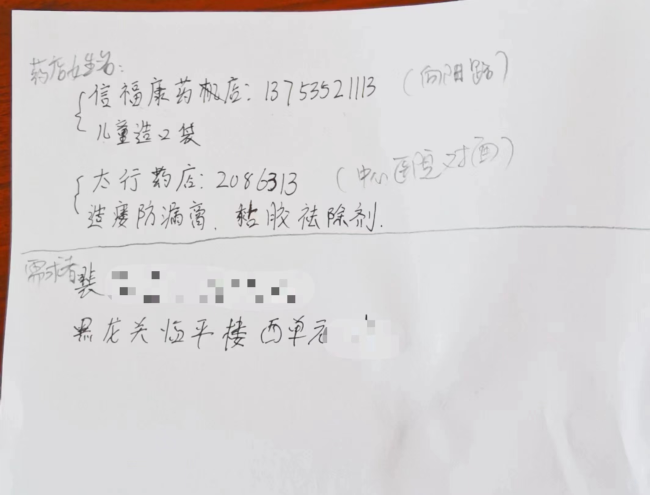 药店姓名:
信福康药机店: 13753521113 (向阳路)
儿童造口袋
太行药店: 2086313 (中心医医对面)
造瘘防漏膏. 粘胶祛除剂.
需求者 裴
黑龙关 平楼 西单元